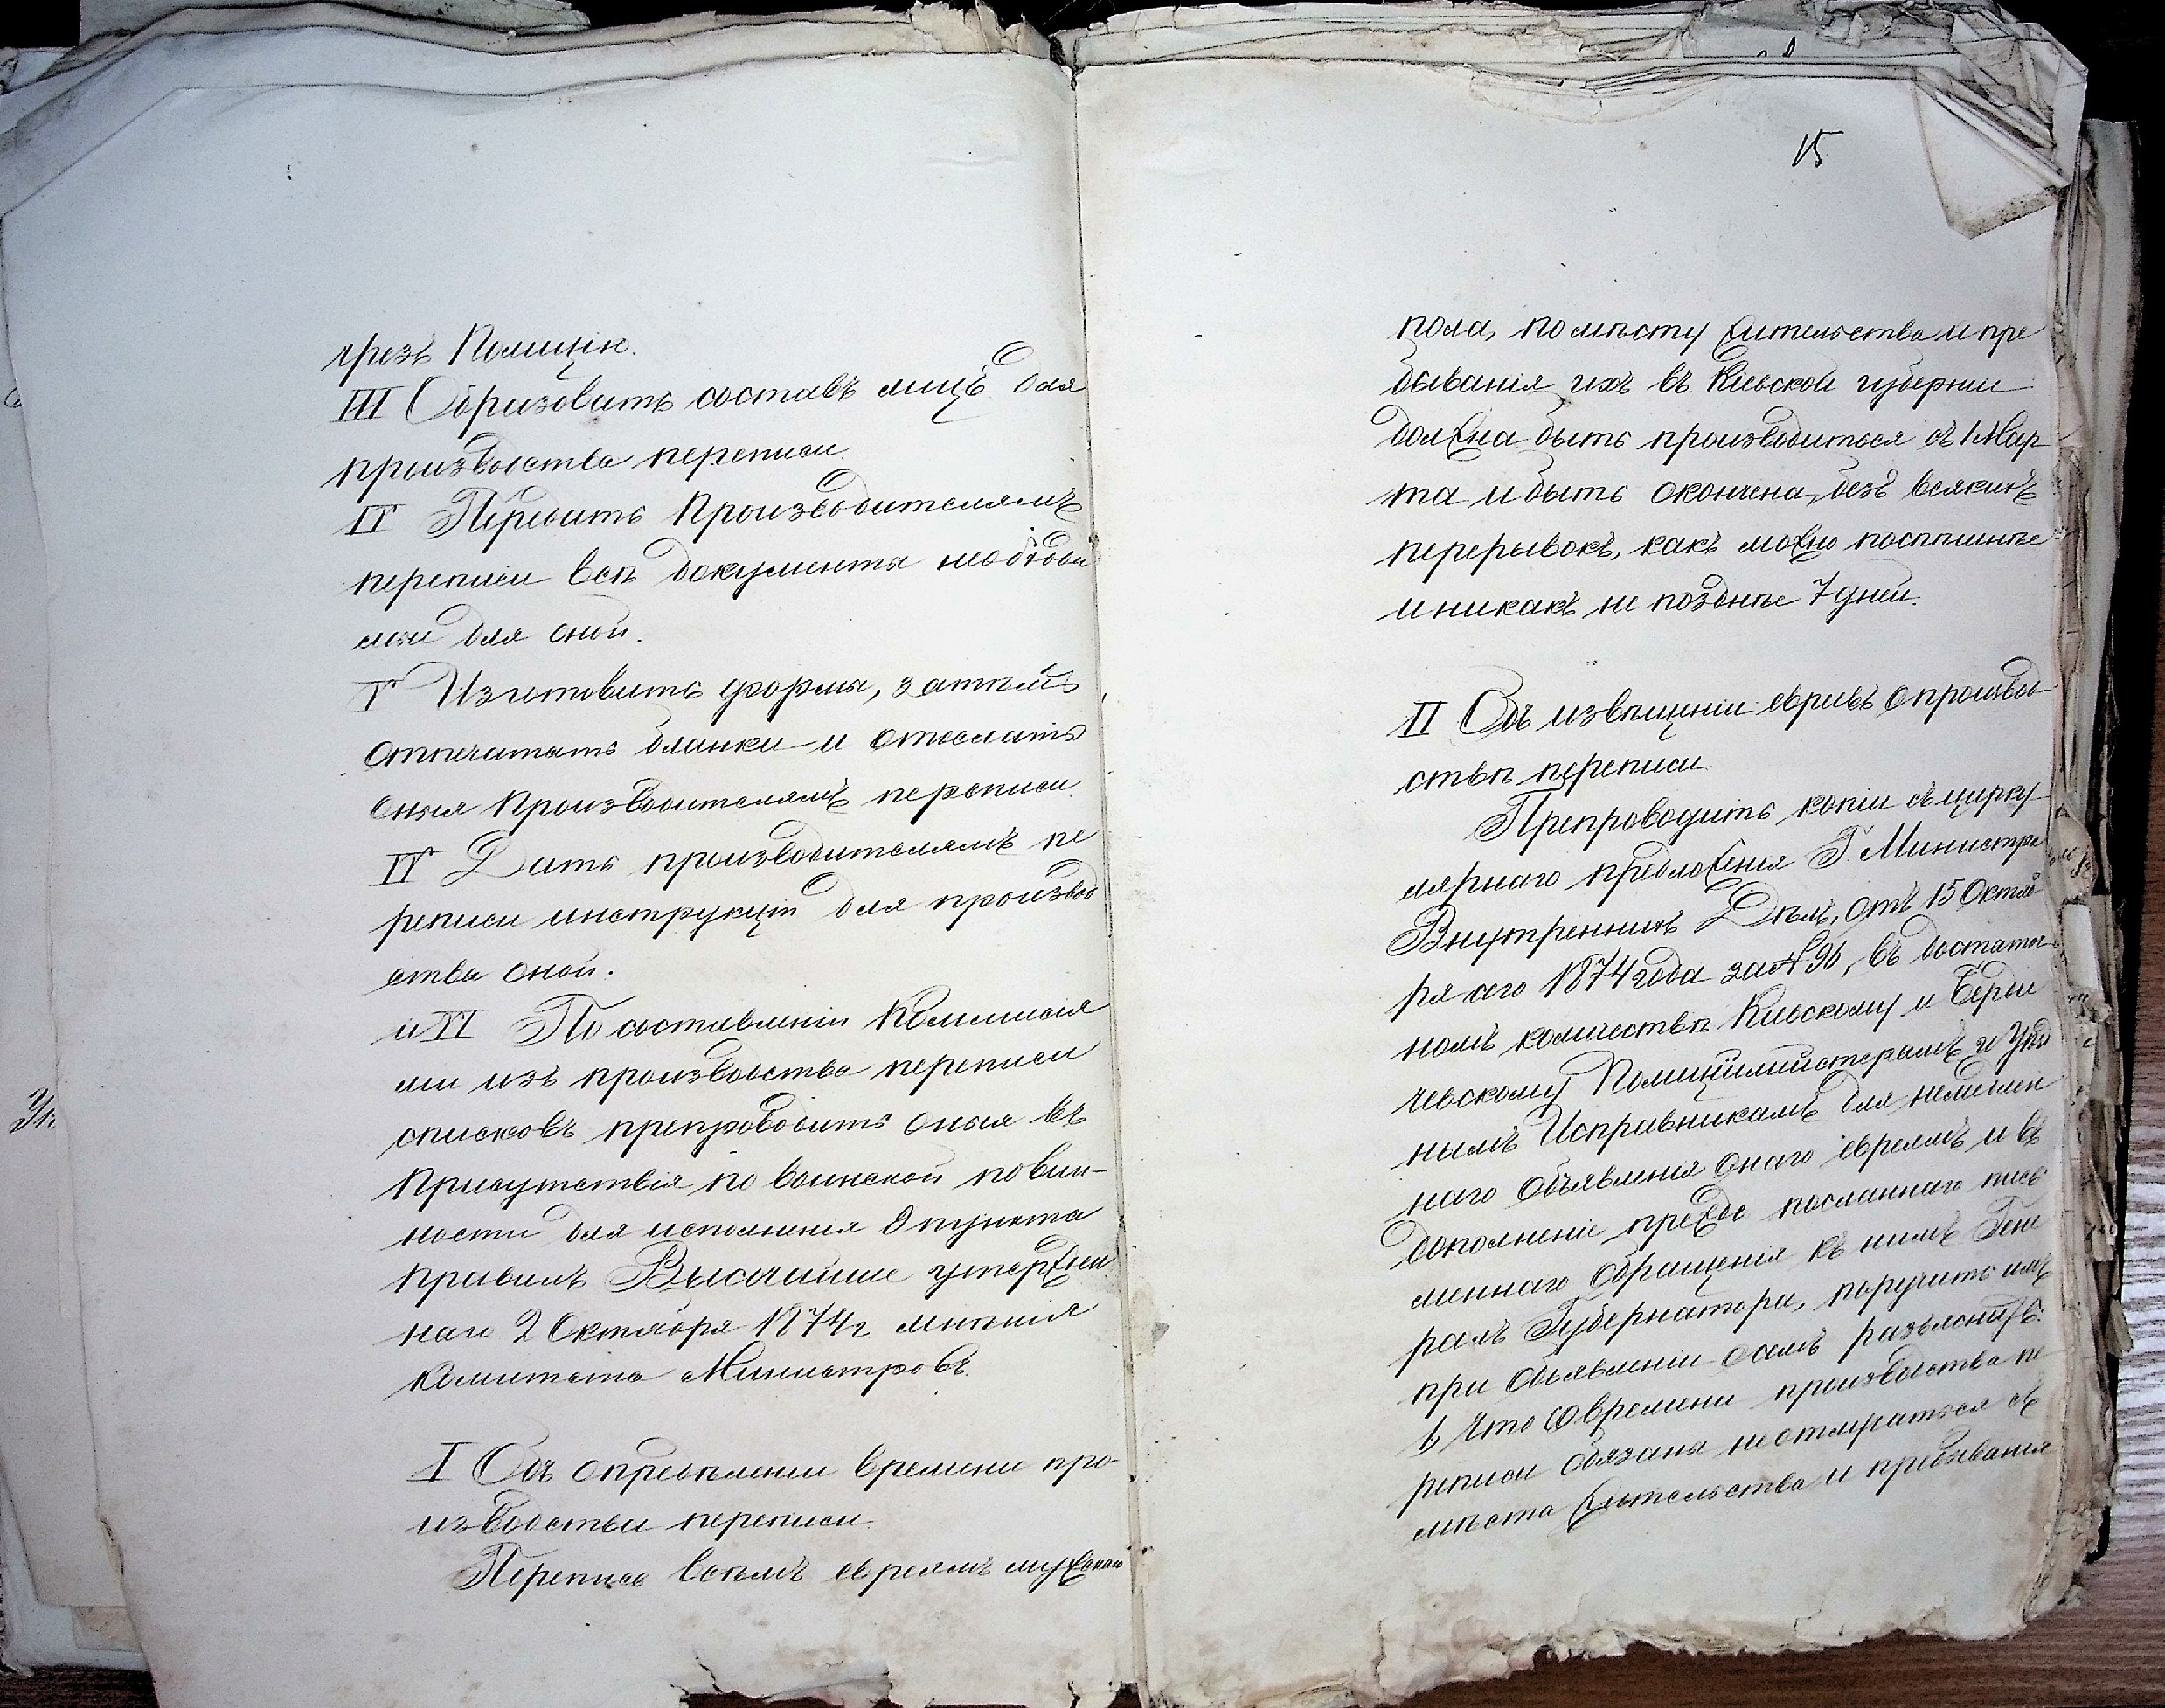 чрезъ Полицію.
III Образовать составъ лицъ для
производства переписи.
IV Передать Производителямъ
переписи всѣ документы необходи
мыи для оной.
V Изготовить формы, затѣмъ
отпечатать бланки и отослать
оныя Производителямъ переписи.
VI Дать производителямъ пе
реписи инструкціи для производ
ства оной.
и VII По составленіи Коммисія
ми изъ производства переписи
списковъ препроводить оныя въ
Присутствія по воинской повин-
ности для исполненія 8 пункта
правилъ Высочайше утвержден
наго 2 Октября 1874 г. мнѣнія
Комитета Министровъ.
I Объ опредѣленіи времени про-
изводства переписи.
Перепись всѣмъ евреямъ мужскаго
15
пола, по мѣсту жительства и пре
быванія ихъ въ Кіевской губерніи
должна быть производиться съ 1 Мар
та и быть окончена, безъ всякихъ
перерывокъ, какъ можно поспѣшнѣе
и никакъ не позднѣе 7 дней.
II Объ извѣщеніи евреевъ о производ-
ствѣ переписи.
Препроводить копіи съ цирку-
лярнаго предложенія Г. Министра
Внутреннихъ Дѣлъ, отъ 15 Октяб
ря сего 1874 года за № 90, въ достаточ-
номъ количествѣ Кіевскому и Берди
чевскому Полицiймейстерамъ и Уѣзд
нымъ Исправникамъ для немедлен
наго объявленія онаго евреямъ и въ
дополненіе прежде посланнаго пись
меннаго обращенія къ нимъ Гене
ралъ Губернатора, поручить имъ
при объявленіи семъ разъяснить:
1) Что со времени производства пе
реписи обязаны не отлучаться съ
мѣста жительства и пребыванія